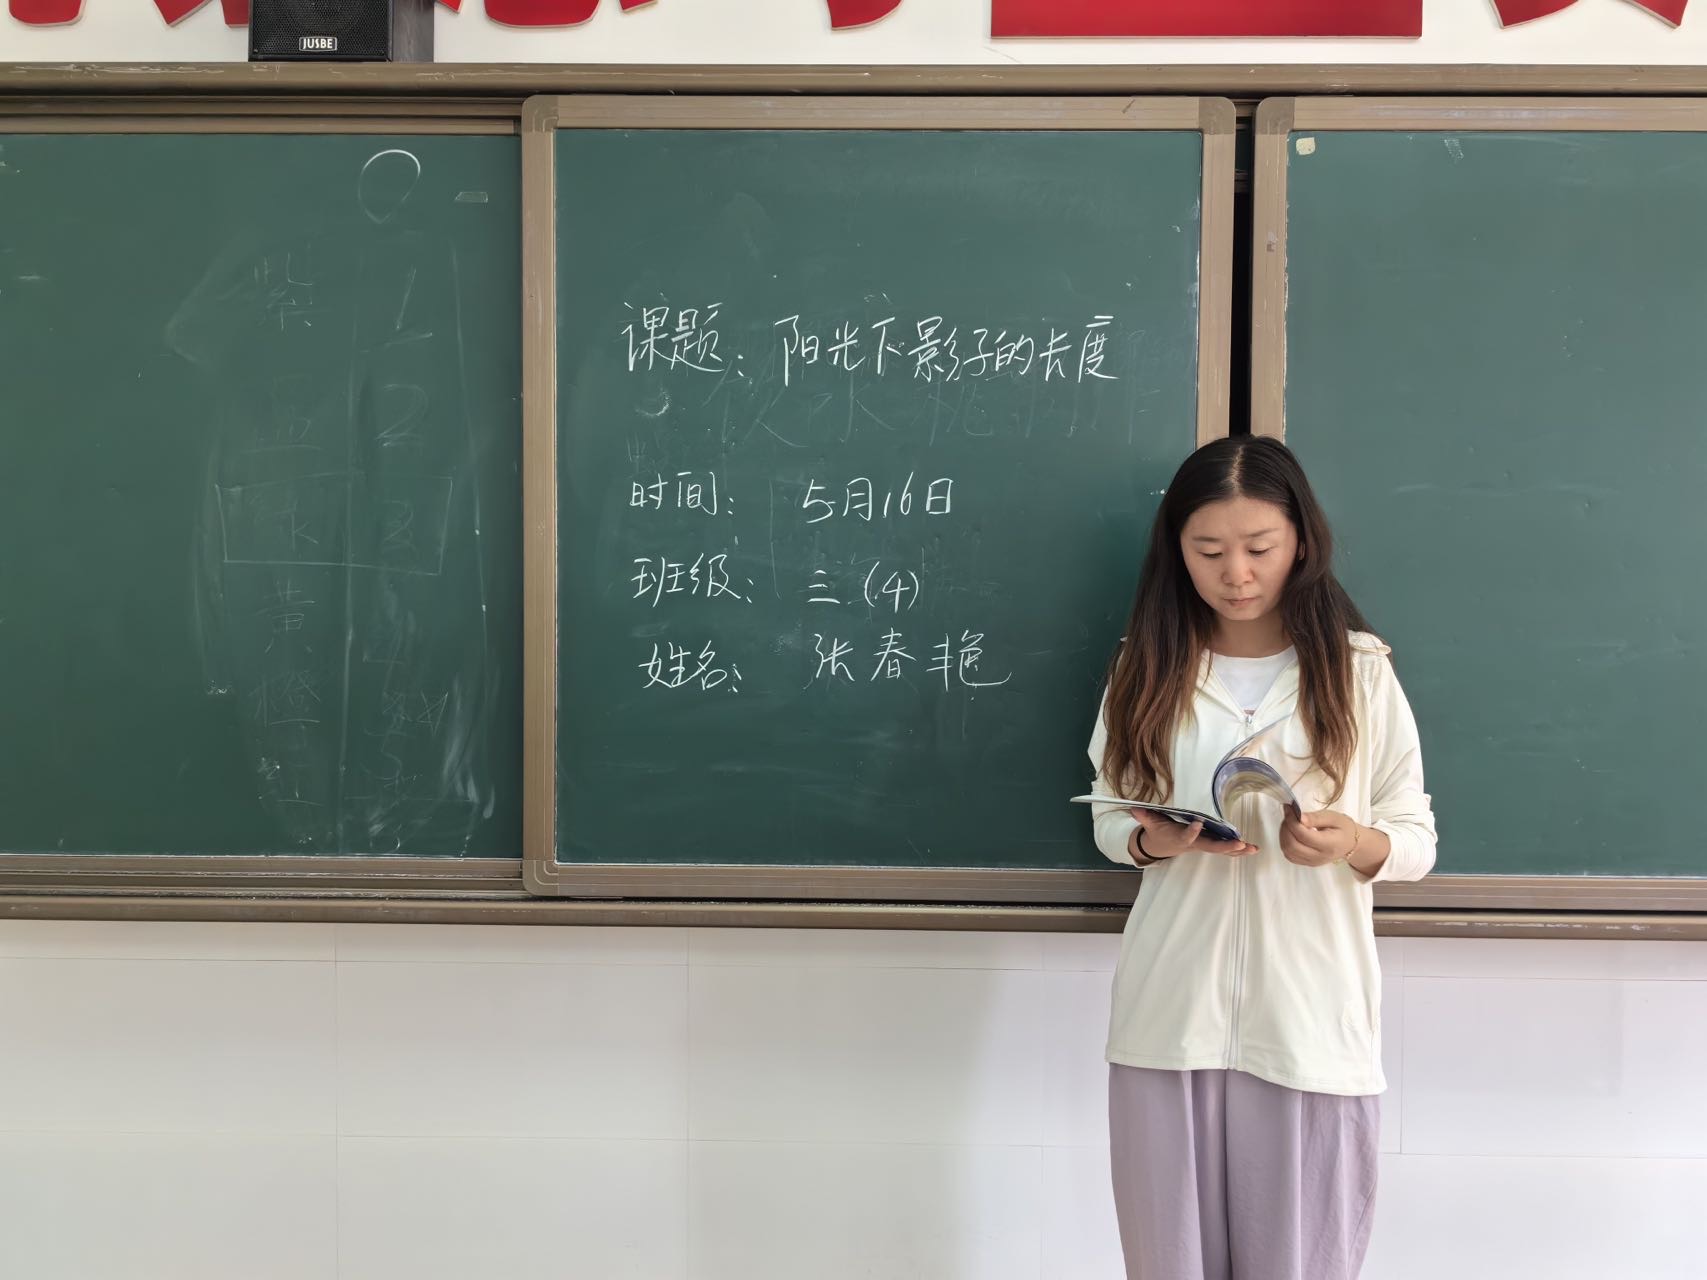 JUSBE
课题：阳光下影子的长度
时间：5月16日
班级：三（4）
姓名：张春艳
紫
1
2
3
黄
橙
5